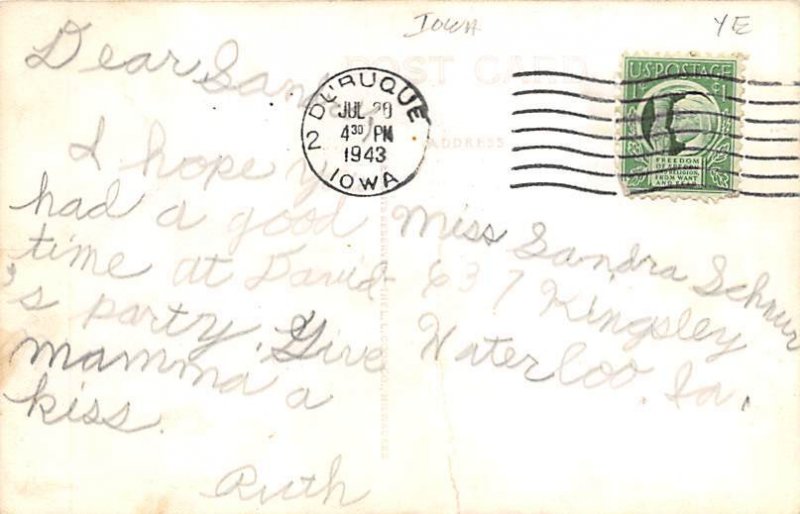 Iowa
YE
POST CARD
ADDRESS
DUBUQUE
JUL 20
4 30 PM
1943
2
IOWA
U.S. POSTAGE
1¢ 1
FREEDOM
OF SPEECH
AND RELIGION,
FROM WANT
AND FEAR
Dear Sandra
I hope you
had a good
time at David
's party. Give
mamma a
kiss.
Ruth
Miss Sandra Schrur
637 Kingsley
Waterloo, Ia.